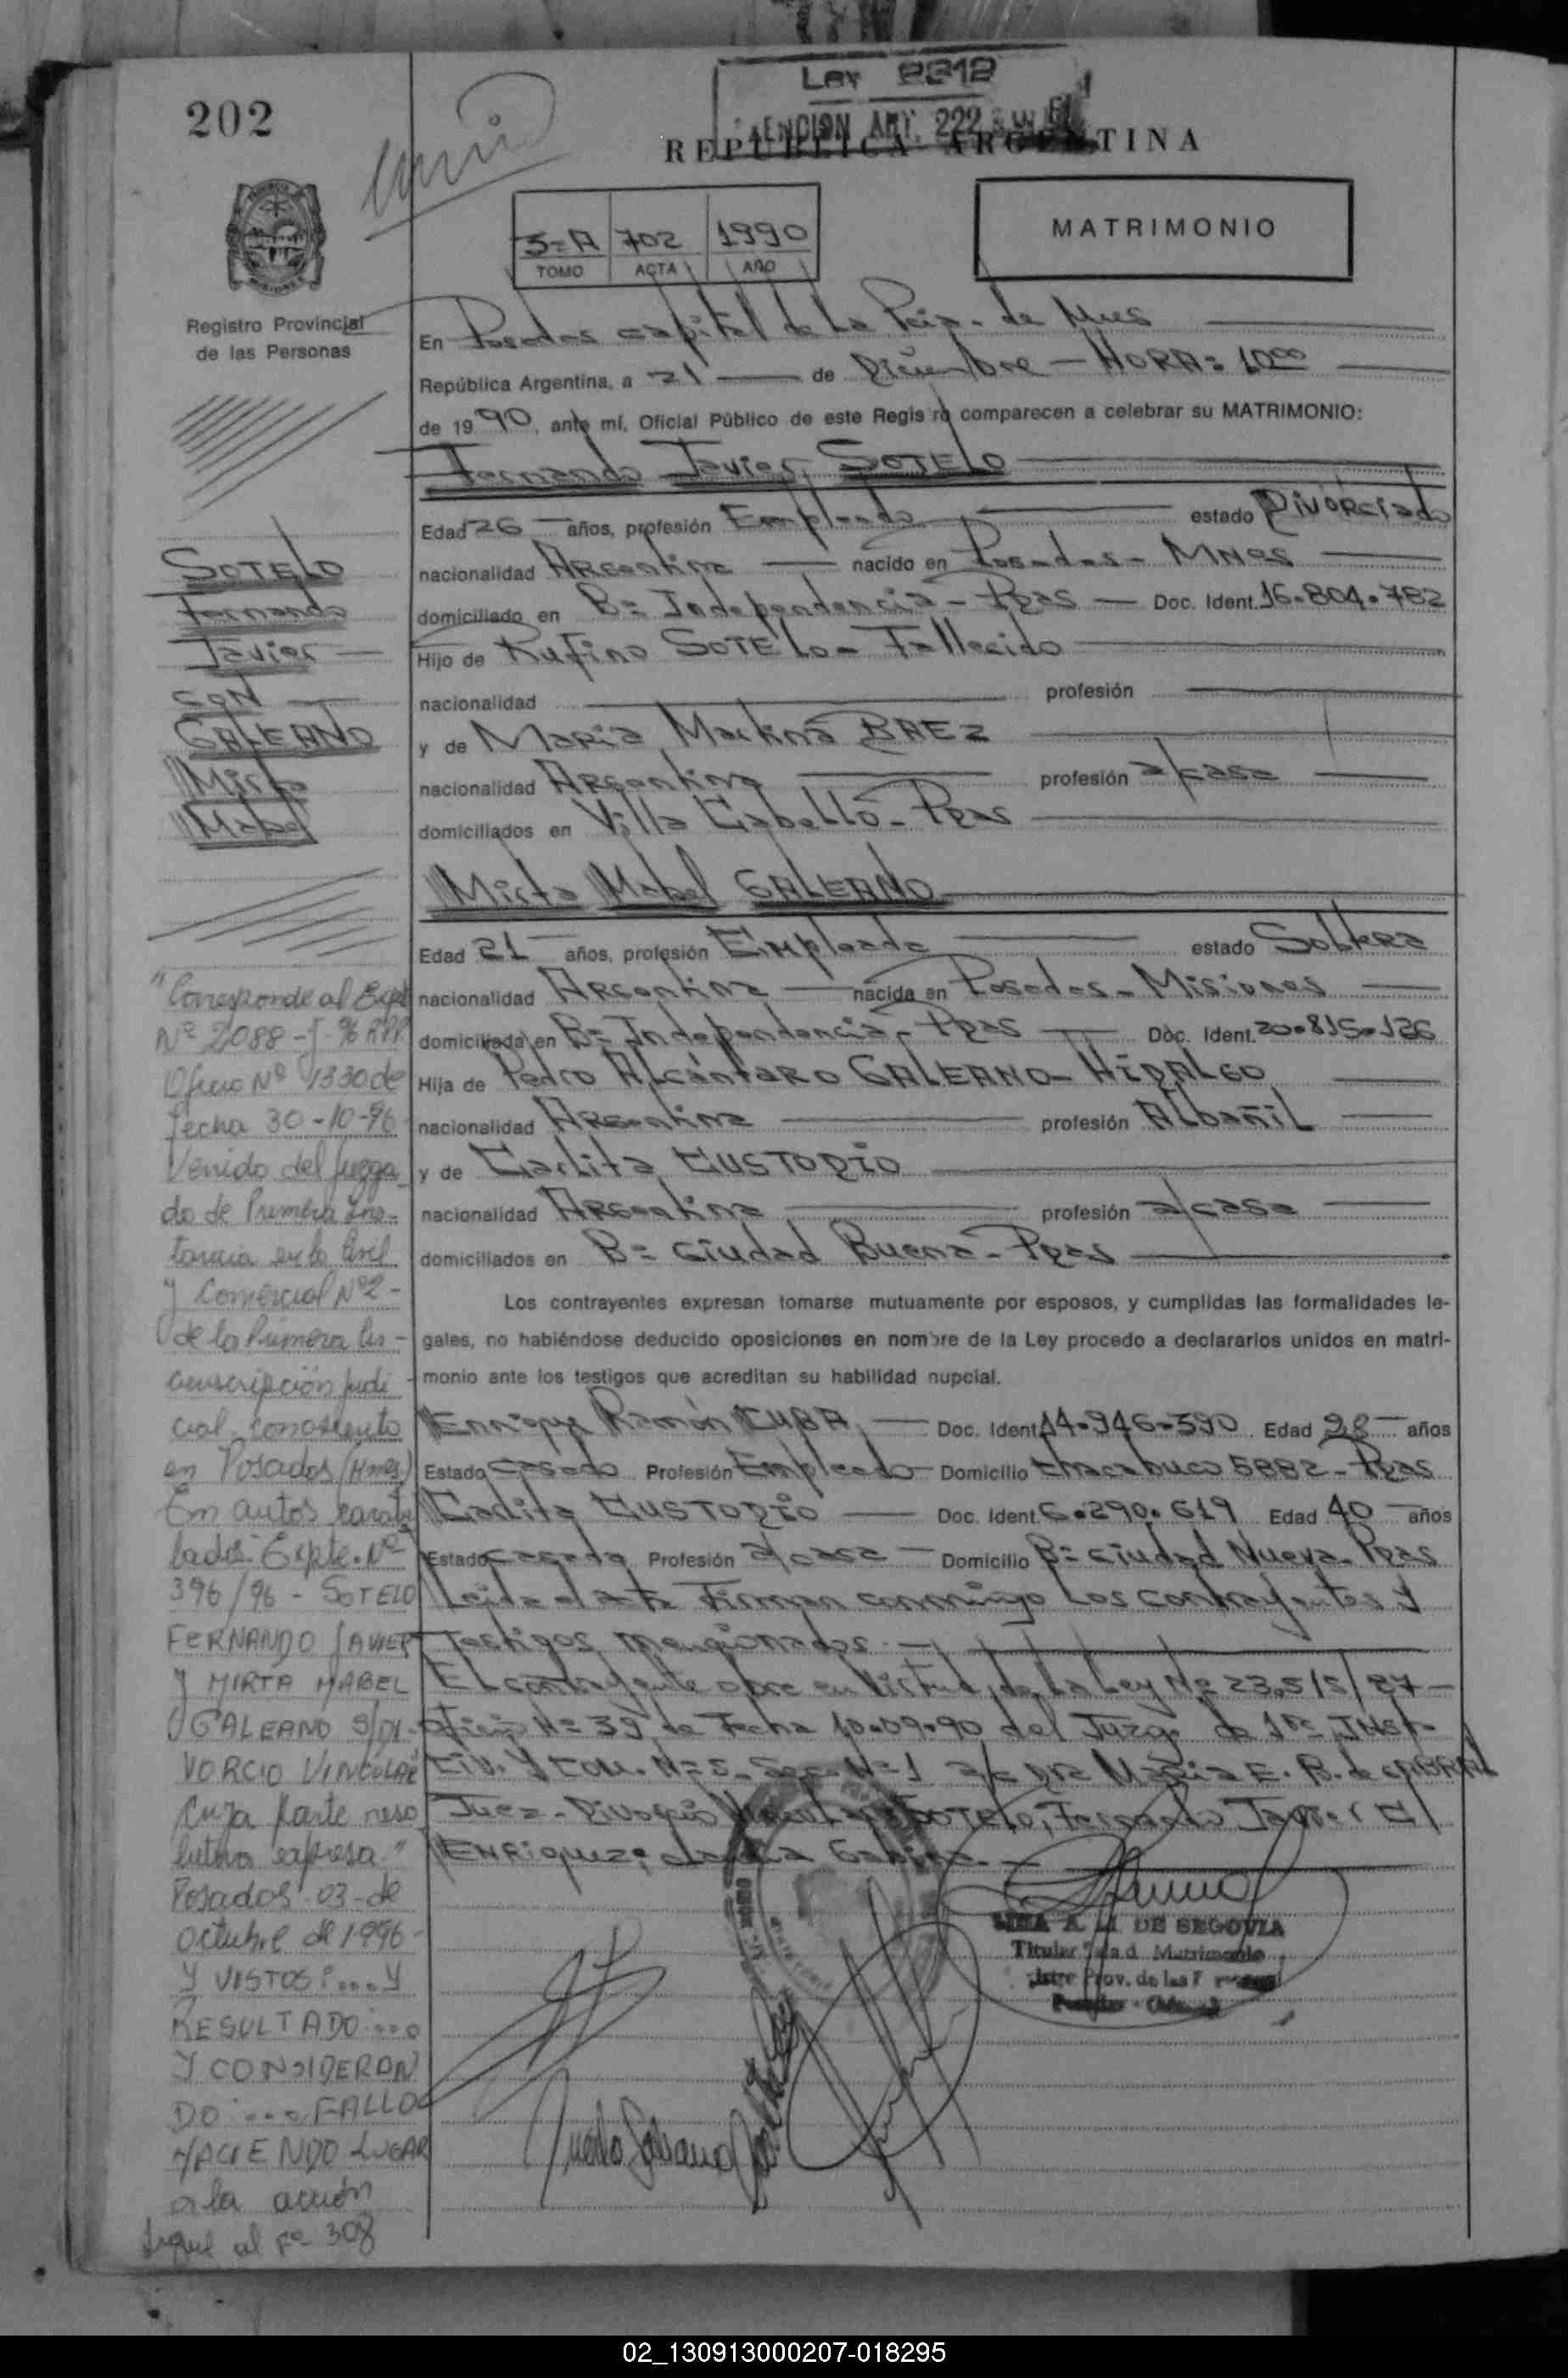 202
Ley 2312
ART. 222
REPUBLICA ARGENTINA
3=A 702 1990
TOMO ACTA AÑO
MATRIMONIO
Registro Provincial
de las Personas
En Posadas capital de La Pcia. de Mnes
República Argentina, a 21 de Diciembre - HORA: 10⁰⁰
de 1990, ante mí, Oficial Público de este Regis ro comparecen a celebrar su MATRIMONIO:
Fernando Javier SOTELO
Edad 26 años, profesión Empleado estado Divorciado
nacionalidad Argentina nacido en Posadas - Mnes
domiciliado en B= Independencia - Pdas Doc. Ident. 16.804.782
Hijo de Rufino SOTELO - Fallecido
nacionalidad profesión
y de María Martina BAEZ
nacionalidad Argentina profesión a/casa
domiciliados en Villa Cabello - Pdas
Mirta Mabel GALEANO
Edad 21 años, profesión Empleada estado Soltera
nacionalidad Argentina nacida en Posadas - Misiones
domiciliada en B= Independencia - Pdas Doc. Ident. 20.815.126
Hija de Pedro Alcántaro GALEANO - HIDALGO
nacionalidad Argentina profesión Albañil
y de Carlita CUSTODIO
nacionalidad Argentina profesión a/casa
domiciliados en B= Ciudad Buena - Pdas
Los contrayentes expresan tomarse mutuamente por esposos, y cumplidas las formalidades le-
gales, no habiéndose deducido oposiciones en nombre de la Ley procedo a declararlos unidos en matri-
monio ante los testigos que acreditan su habilidad nupcial.
Enrique Ramón CUBA Doc. Ident 14.946.390 Edad 28 años
Estado casado Profesión Empleado Domicilio Chacabuco 5882 - Pdas
Carlita CUSTODIO Doc. Ident 6.290.619 Edad 40 años
Estado casada Profesión a/casa Domicilio B= Ciudad Nueva - Pdas
Leída el acta Firman conmigo Los contrayentes y
testigos mencionados.
El contrayente obra en Virtud de La Ley Nº 23.515/87 -
Oficio Nº 39 de Fecha 10.09.90 del Juzg. de 1ra INST.
CIV. y COM. Nº 5 - Sec. Nº 1 a/c Dra María E. B. de CABRAL
Juez - Divorcio Vincular SOTELO, Fernando Javier C/
ENRiquez;
SOTELO
Fernando
Javier
CON
GALEANO
Mirta
Mabel
"Corresponde al Expt
Nº 2088-J-96 RPP.
Oficio Nº 1330 de
fecha 30-10-96
Venido del Juzga-
do de Primera Ins-
tancia en lo Civil
y Comercial Nº 2 -
de la Primera Cir-
cunscripción Judi-
cial con asiento
en Posadas (Mnes)
En autos caratu
lados Expte. Nº
396/96 - SOTELO
FERNANDO JAVIER
Y MIRTA MABEL
GALEANO S/DI-
VORCIO VINCULAR
Cuya parte reso
lutiva expresa"
Posadas 03 - de
octubre de 1996 -
Y VISTOS:...Y
RESULTADO:...
Y CONSIDERAN
DO:... FALLO
HACIENDO LUGAR
a la acción
Sigue al Fº 308
A. DE SEGOVIA
Titular Matrimonio
Prov. de las
Mirta Galeano
02_130913000207-018295